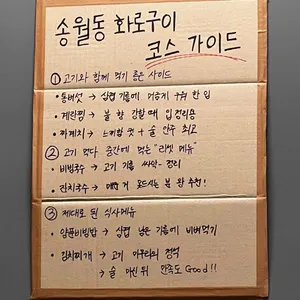 송월동 화로구이
코스 가이드
① 고기와 함께 먹기 좋은 사이드
• 통버섯 → 삼겹 기름에 구워 한 입
• 계란찜 → 불 향 강할 때 입 정리용
• 파께치 → 느끼함 컷 + 술 안주 최고
② 고기 먹다 중간에 먹는 "리셋 메뉴"
• 비빔국수 → 고기 기름 싸악- 정리
• 김치국수 → 맵게 못드시는 분 완 추천!
③ 제대로 된 식사메뉴
• 양푼비빔밥 → 삼겹 남은 기름에 비벼먹기
• 김치찌개 → 고기 마무리의 정석
→ 술 마신 뒤 만족도 Good!!